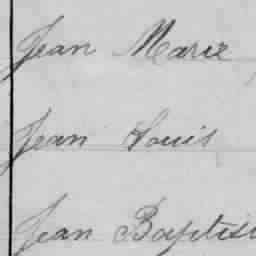 Jean Marie
Jean Louis
Jean Baptis